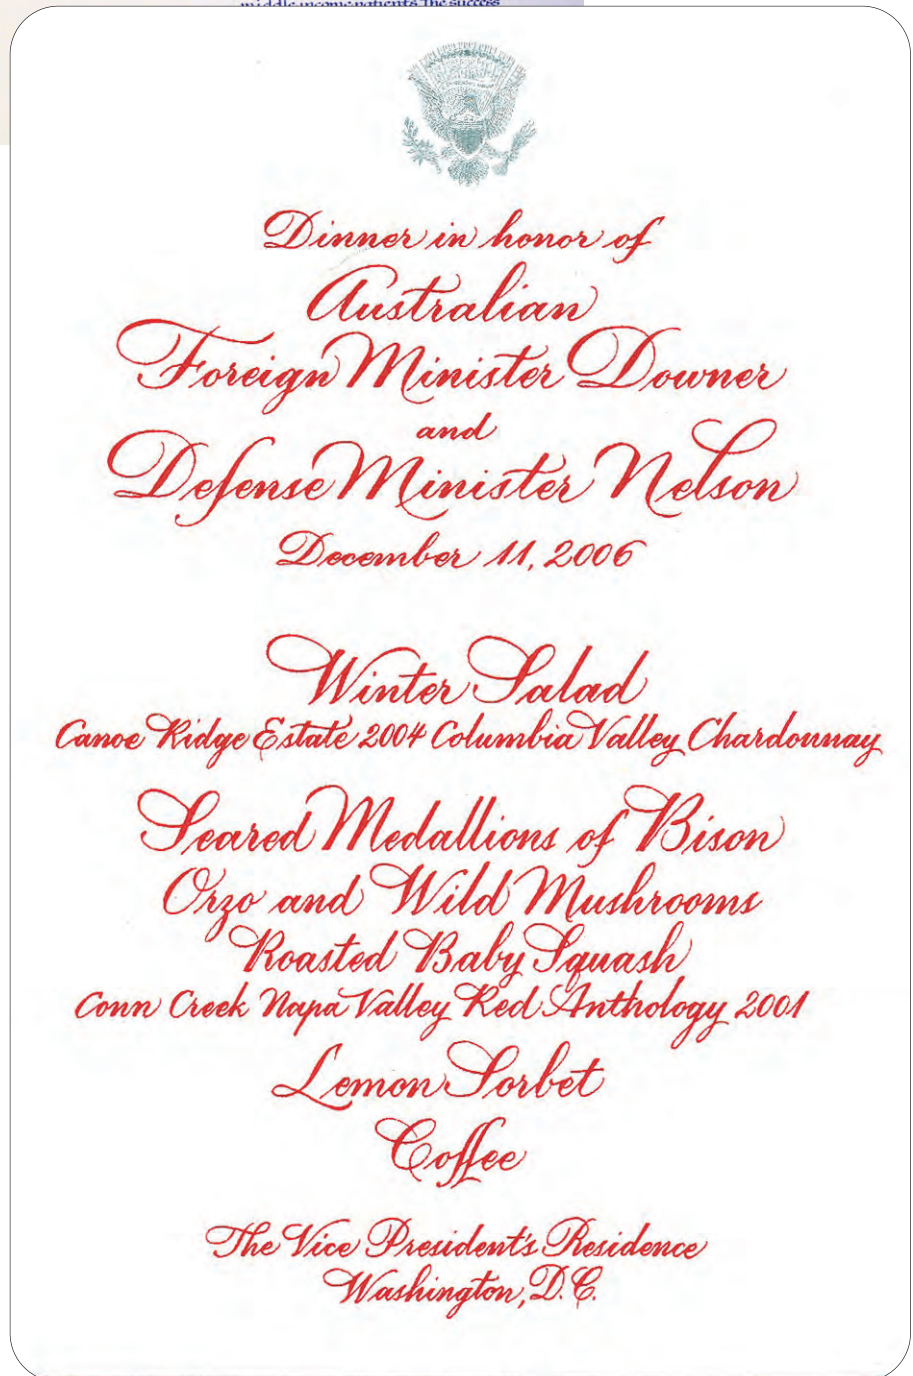 middle income patients. The success
Dinner in honor of
Australian
Foreign Minister Downer
and
Defense Minister Nelson
December 11, 2006
Winter Salad
Canoe Ridge Estate 2004 Columbia Valley Chardonnay
Seared Medallions of Bison
Orzo and Wild Mushrooms
Roasted Baby Squash
Conn Creek Napa Valley Red Anthology 2001
Lemon Sorbet
Coffee
The Vice President's Residence
Washington, D.C.